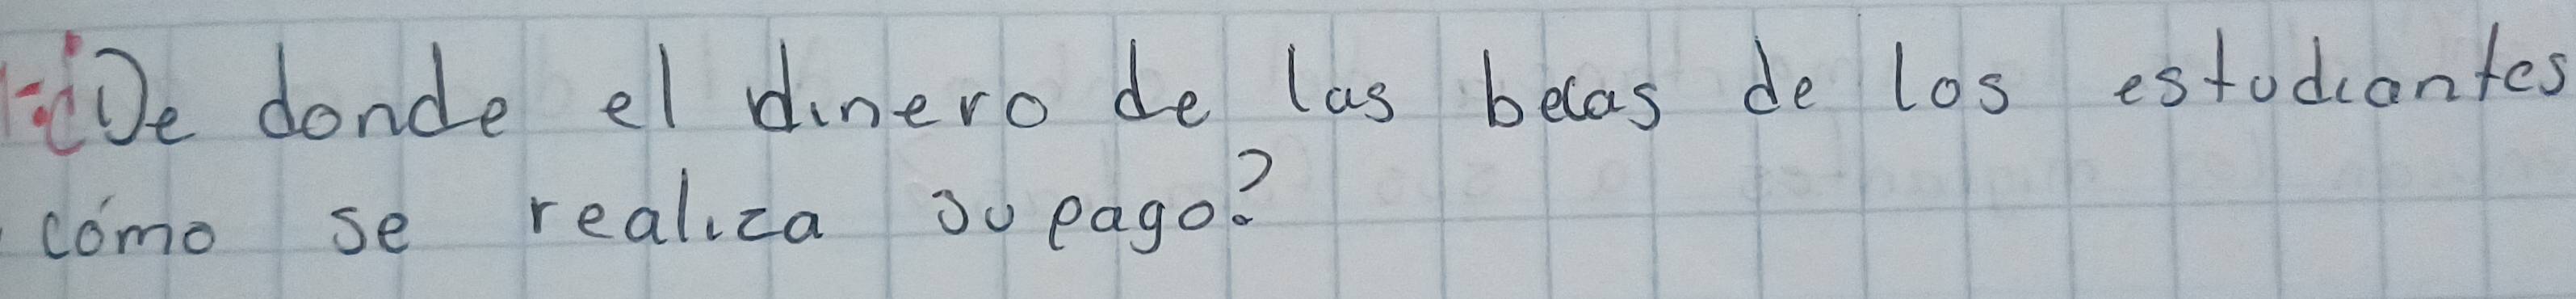 1-¿De donde el dinero de las becas de los estudiantes
cómo se realiza su pago?